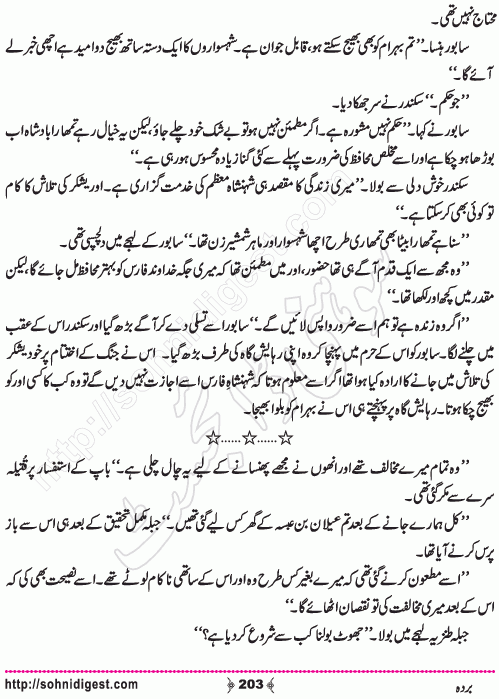 محتاج نہیں تھی۔
سابور ہنسا۔’’تم بہرام کو بھی بھیج سکتے ہو، قابل جوان ہے۔ شہسواروں کا ایک دستہ ساتھ بھیج دو امید ہے اچھی خبر لے
آئے گا۔‘‘
’’جو حکم۔‘‘ سکندر نے سر جھکا دیا۔
سابور نے کہا۔’’حکم نہیں مشورہ ہے۔ اگر مطمئن نہیں ہو تو بے شک خود چلے جاؤ، لیکن یہ خیال رہے تمھارا بادشاہ اب
بوڑھا ہو چکا ہے اور اسے مخلص محافظ کی ضرورت پہلے سے کئی گنا زیادہ محسوس ہو رہی ہے۔‘‘
سکندر خوش دلی سے بولا۔’’میری زندگی کا مقصد ہی شہنشاہ معظم کی خدمت گزاری ہے۔ اور یشکر کی تلاش کا کام
تو کوئی بھی کر سکتا ہے۔‘‘
’’سنا ہے تمھارا بیٹا بھی تمھاری طرح اچھا شہسوار اور ماہر شمشیر زن تھا۔‘‘ سابور کے لہجے میں دلچسپی تھی۔
’’وہ مجھ سے ایک قدم آگے ہی تھا حضور، اور میں مطمئن تھا کہ میری جگہ خداوند فارس کو بہتر محافظ مل جائے گا، لیکن
مقدر میں کچھ اور لکھا تھا۔‘‘
’’اگر وہ زندہ ہے تو ہم اسے ضرور واپس لائیں گے۔‘‘ سابور اسے تسلی دے کر آگے بڑھ گیا اور سکندر اس کے عقب
میں چلنے لگا۔ سابور کو اس کے حرم میں پہنچا کر وہ اپنی رہایش گاہ کی طرف بڑھ گیا۔ اس نے جنگ کے اختتام پر خود یشکر
کی تلاش میں جانے کا ارادہ کیا ہوا تھا اگر اسے معلوم ہوتا کہ شہنشاہِ فارس اسے اجازت نہیں دیں گے تو وہ کب کا کسی اور کو
بھیج چکا ہوتا۔ رہایش گاہ پر پہنچتے ہی اس نے بہرام کو بلوا بھیجا۔
☆......☆......☆
’’وہ تمام میرے مخالف تھے اور انھوں نے مجھے پھنسانے کے لیے یہ چال چلی ہے۔‘‘ باپ کے استفسار پر قُتیلہ
سرے سے مکر گئی تھی۔
’’کل ہمارے جانے کے بعد تم عیلان بن عبسہ کے گھر کس لیے گئی تھیں۔‘‘ جبلہ مکمل تحقیق کے بعد ہی اس سے باز
پرس کرنے آیا تھا۔
’’اسے مطعون کرنے گئی تھی کہ میرے بغیر کس طرح وہ اور اس کے ساتھی ناکام لوٹے تھے۔ اسے نصیحت بھی کی کہ
اس کے بعد میری مخالفت کی تو نقصان اٹھائے گا۔‘‘
جبلہ طنزیہ لہجے میں بولا۔’’جھوٹ بولنا کب سے شروع کر دیا ہے؟‘‘
بردہ
203
http://sohnidigest.com